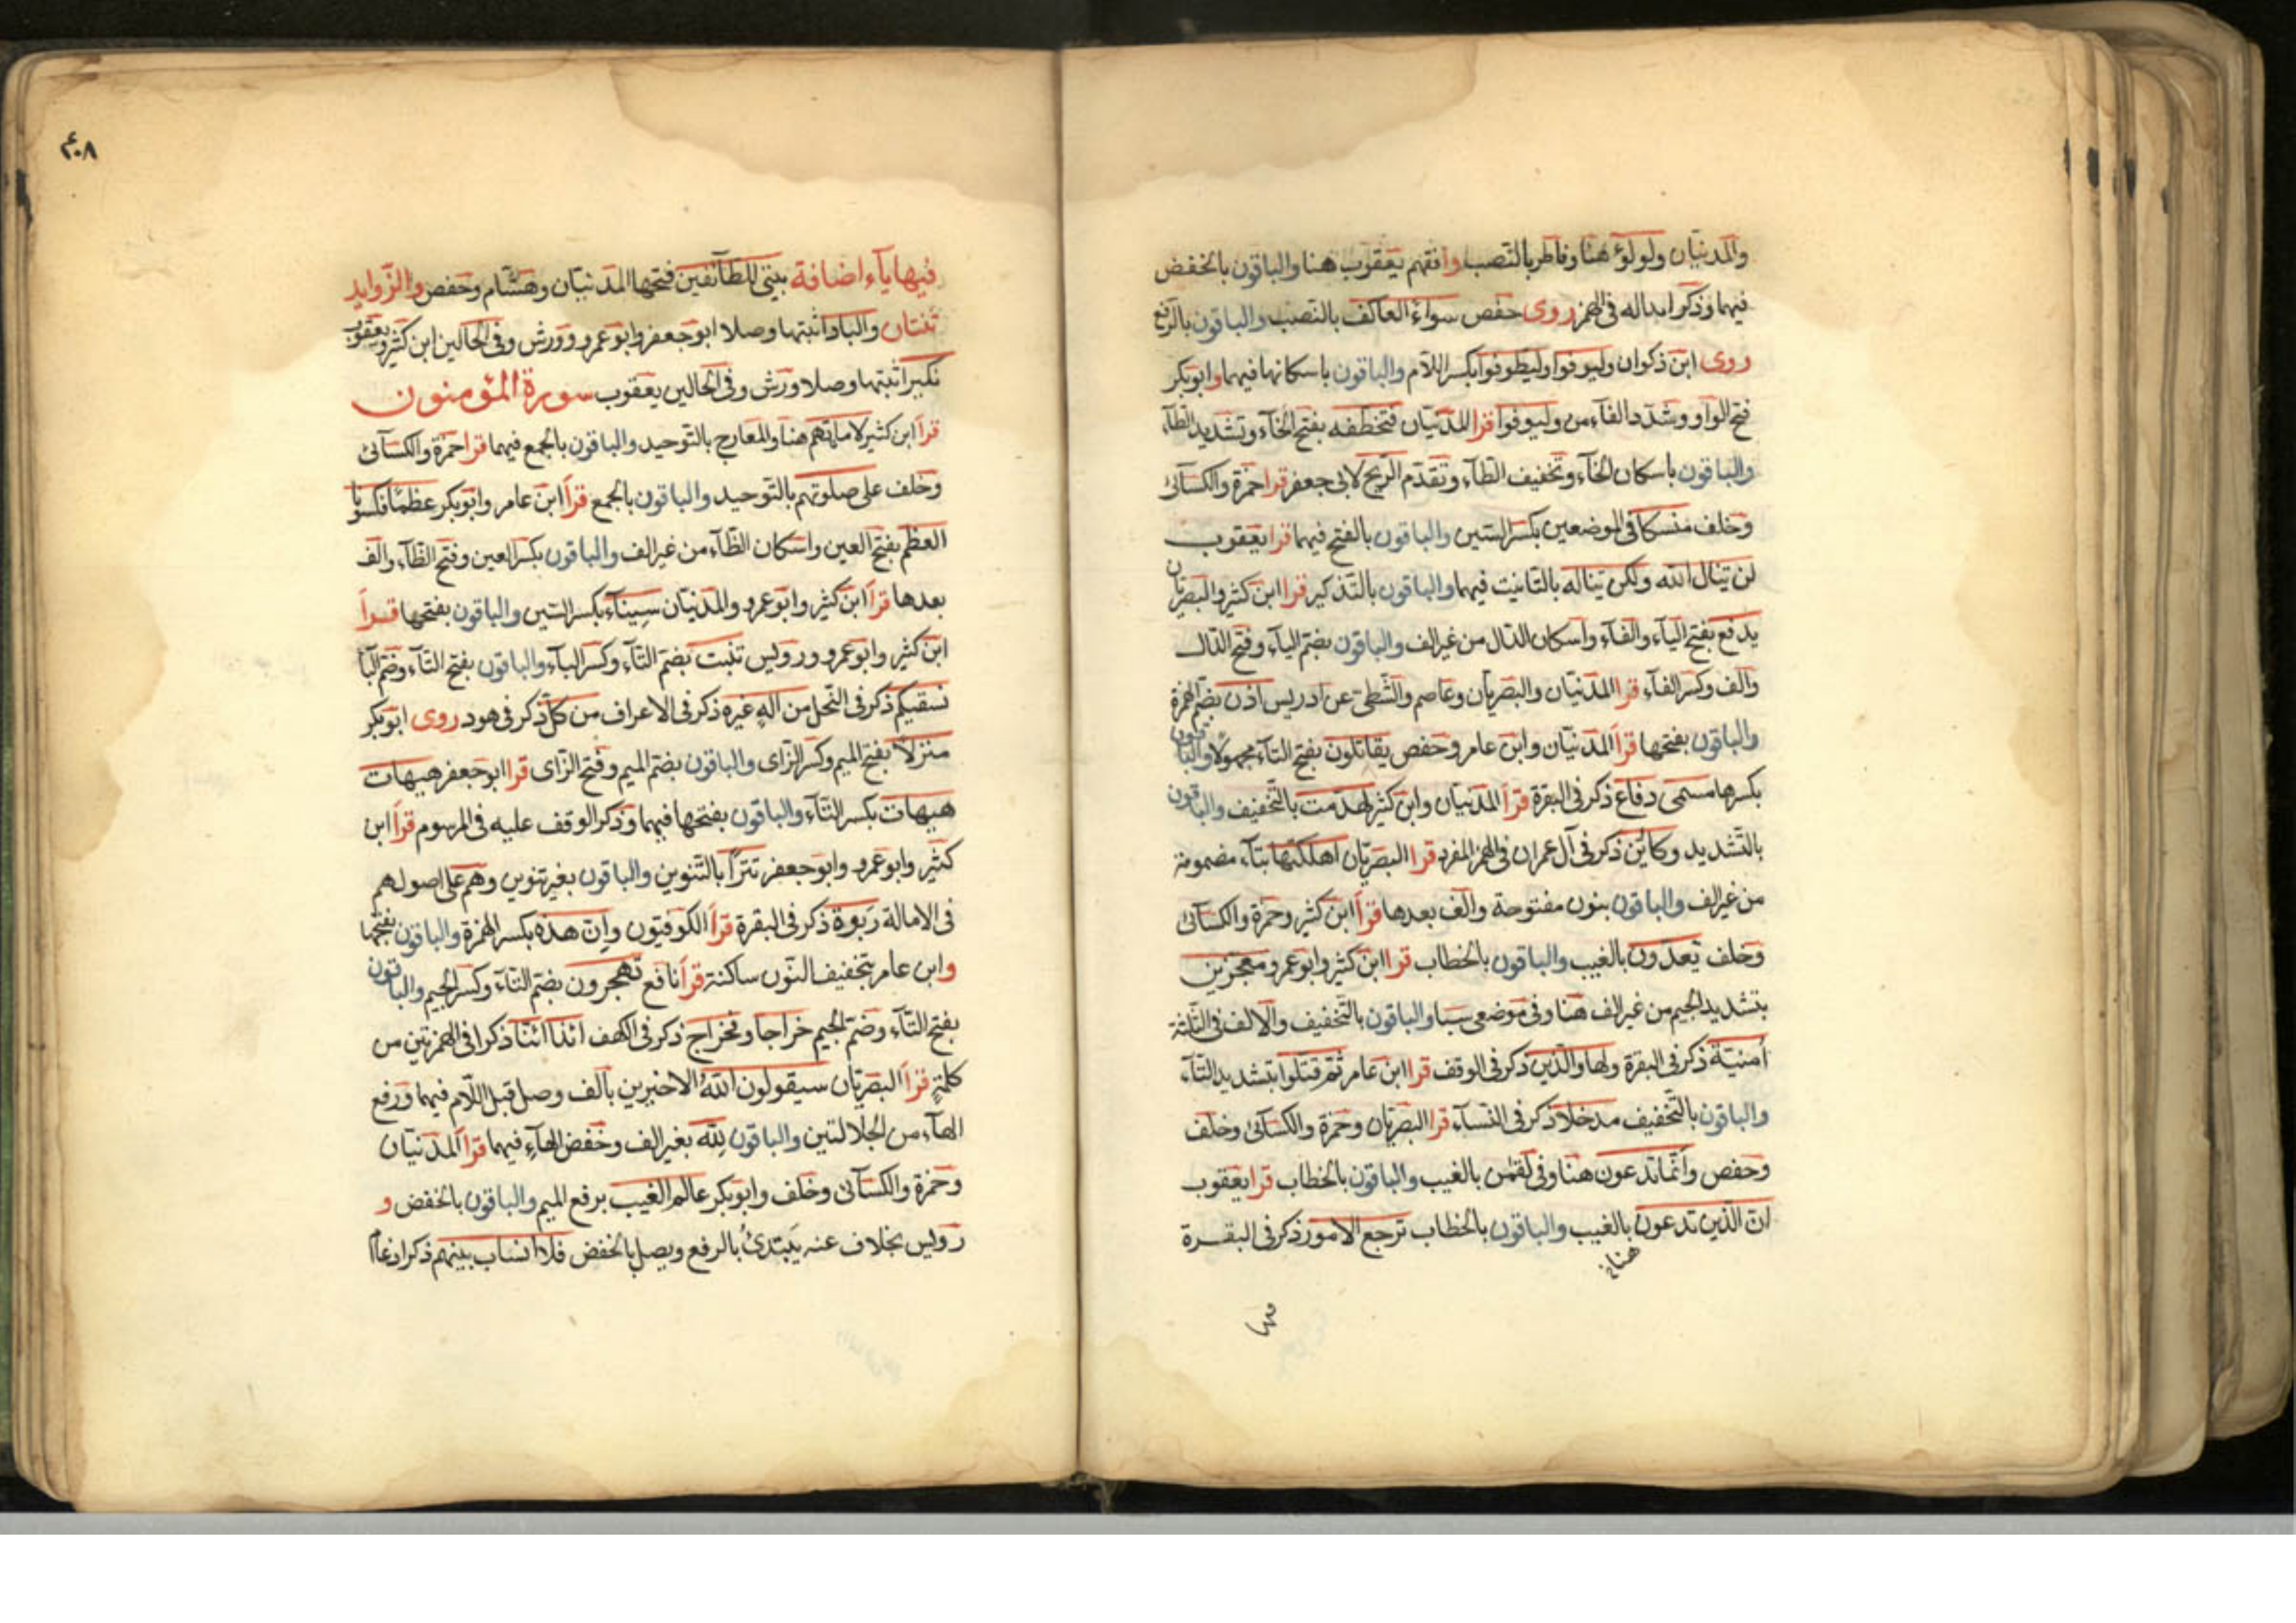 والمدنيان ولولؤ هنا وفاطر بالنصب وافقهم يعقوب هنا والباقون بالخفض
فيهما وذكر ابداله فى الهمز روى حفص سواء العاكف بالنصب والباقون بالرفع
روى ابن ذكوان وليوفوا وليطوفوا بكسر اللام والباقون باسكانها فيهما وابوبكر
فتح الواو وشدد الفاء من وليوفوا قرا المدنيان فتخطفه بفتح الخاء وتشديد الطاء
والباقون باسكان الخاء وتخفيف الطاء وتقدم الريح لابى جعفر قرا حمزة والكسائى
وخلف منسكا فى الموضعين بكسر السين والباقون بالفتح فيهما قرا يعقوب
لن تنال الله ولكن تناله بالتانيث فيهما والباقون بالتذكير قرا ابن كثير والبصريان
يدفع بفتح الياء والفاء واسكان الدال من غير الف والباقون بضم الياء وفتح الدال
والف وكسر الفاء قرا المدنيان والبصريان وعاصم والشطى عن ادريس اذن بضم الهمزة
والباقون بفتحها قرأ المدنيان وابن عامر وحفص يقاتلون بفتح التاء مجهولا والباقون
بكسرها مسمى دفاع ذكر فى البقرة قرأ المدنيان وابن كثير لهدمت بالتخفيف والباقون
بالتشديد وكائن ذكر فى آل عمران فى الهمز المفرد قرا البصريان اهلكتها بتاء مضمومة
من غير الف والباقون بنون مفتوحة والف بعدها قرأ ابن كثير وحمزة والكسائى
وخلف تعدون بالغيب والباقون بالخطاب قرا ابن كثير وابو عمرو معجزين
بتشديد الجيم من غير الف هنا وفى موضعى سبا والباقون بالتخفيف والالف فى الثلثة
أمنيته ذكر فى البقرة ولهاد الذين ذكر فى الوقف قرا ابن عامر ثم قتلوا بتشديد التاء
والباقون بالتخفيف مدخلا ذكر فى النساء قرا البصريان وحمزة والكسائى وخلف
وحفص وانما تدعون هنا وفى لقمن بالغيب والباقون بالخطاب قرا يعقوب
ان الذين تدعون بالغيب والباقون بالخطاب ترجع الامور ذكر فى البقرة
هنا
٤٠٨
فيها ياء اضافة بيتى للطائفين فتحها المدنيان وهشام وحفص والزوايد
ثنتان والباد اثبتها وصلا ابو جعفر وابو عمرو وورش وفى الحالين ابن كثير ويعقوب
نكير اثبتها وصلا ورش وفى الحالين يعقوب سورة المؤمنون
قرأ ابن كثير لاماناتهم هنا والمعارج بالتوحيد والباقون بالجمع فيهما قرا حمزة والكسائى
وخلف على صلوتهم بالتوحيد والباقون بالجمع قرأ ابن عامر وابوبكر عظما فكسونا
العظم بفتح العين واسكان الظاء من غير الف والباقون بكسر العين وفتح الظاء والف
بعدها قرأ ابن كثير وابو عمرو والمدنيان سيناء بكسر السين والباقون بفتحها قرأ
ابن كثير وابو عمرو ورويس تنبت بضم التاء وكسر الباء والباقون بفتح التاء وضم البا
نسقيكم ذكر فى النحل من اله غيره ذكر فى الاعراف من كل ذكر فى هود روى ابوبكر
منزلا بفتح الميم وكسر الزاى والباقون بضم الميم وفتح الزاى قرا ابو جعفر هيهات
هيهات بكسر التاء والباقون بفتحها فيهما وذكر الوقف عليه فى المرسوم قرأ ابن
كثير وابو عمرو وابو جعفر تترا بالتنوين والباقون بغير تنوين وهم على اصولهم
فى الامالة ربوة ذكر فى البقرة قرأ الكوفيون وان هذه بكسر الهمزة والباقون بفتحها
وابن عامر بتخفيف النون ساكنة قرأ نافع تهجرون بضم التاء وكسر الجيم والباقون
بفتح التاء وضم الجيم خراجا وفخراج ذكر فى الكهف ائذا ائنا ذكرا فى الهمزتين من
كلمة قرأ البصريان سيقولون الله الاخيرين بالف وصل قبل اللام فيهما ورفع
الهاء من الجلالتين والباقون لله بغير الف وخفض الهاء فيهما قرأ المدنيان
وحمزة والكسائى وخلف وابوبكر عالم الغيب برفع الميم والباقون بالخفض و
رويس بخلاف عنه يبتدئ بالرفع ويصل بالخفض فلا انساب بينهم ذكر ادغا